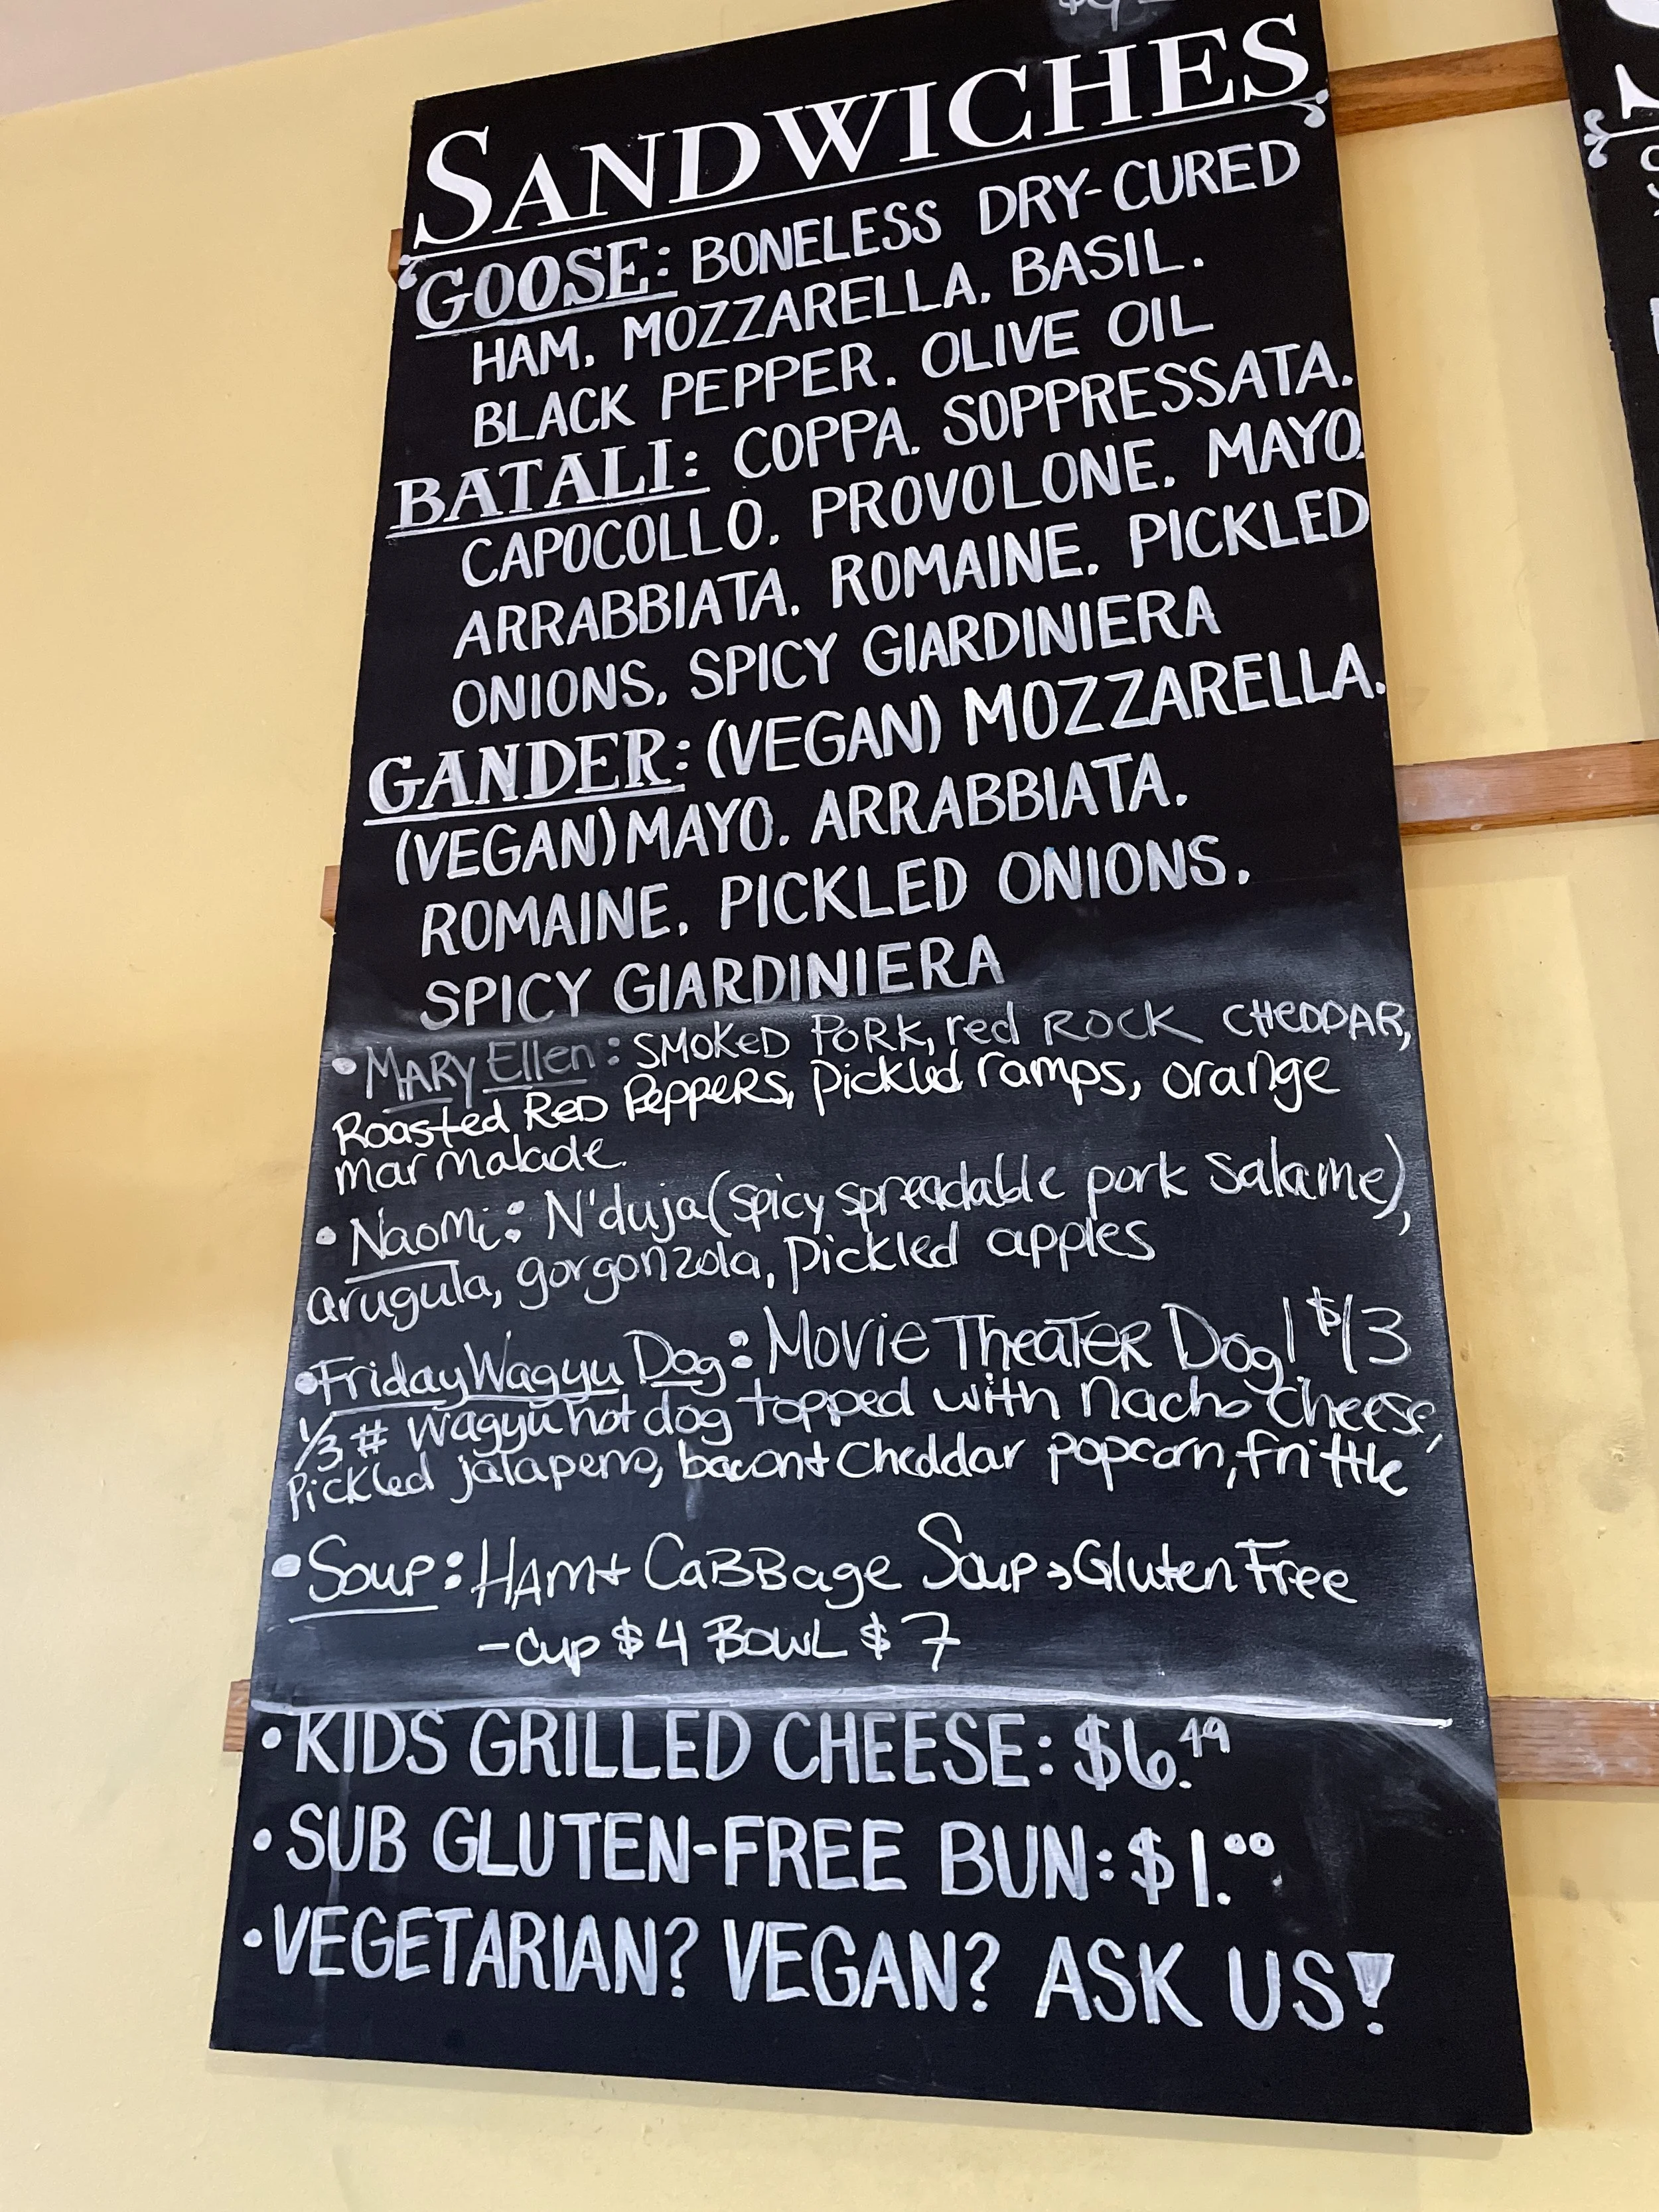 SANDWICHES
GOOSE: BONELESS DRY-CURED
HAM. MOZZARELLA. BASIL.
BLACK PEPPER. OLIVE OIL
BATALI: COPPA. SOPPRESSATA.
CAPOCOLLO. PROVOLONE. MAYO.
ARRABBIATA. ROMAINE. PICKLED
ONIONS. SPICY GIARDINIERA
GANDER: (VEGAN) MOZZARELLA.
(VEGAN) MAYO. ARRABBIATA.
ROMAINE. PICKLED ONIONS.
SPICY GIARDINIERA
• MARY Ellen: SMOKED PORK, red ROCK CHEDDAR,
Roasted RED Peppers, Pickled ramps, orange
marmalade.
• Naomi: N'duja (spicy spreadable pork salame),
arugula, gorgonzola, pickled apples
• Friday Wagyu Dog: Movie Theater Dog! $13
1/3 # wagyu hot dog topped with nacho cheese,
Pickled jalapeno, bacon + cheddar popcorn, frittle
• Soup: HAM + CABBage Soup → Gluten Free
- Cup $4 BOWL $7
• KIDS GRILLED CHEESE: $6.49
• SUB GLUTEN-FREE BUN: $1.00
• VEGETARIAN? VEGAN? ASK US!